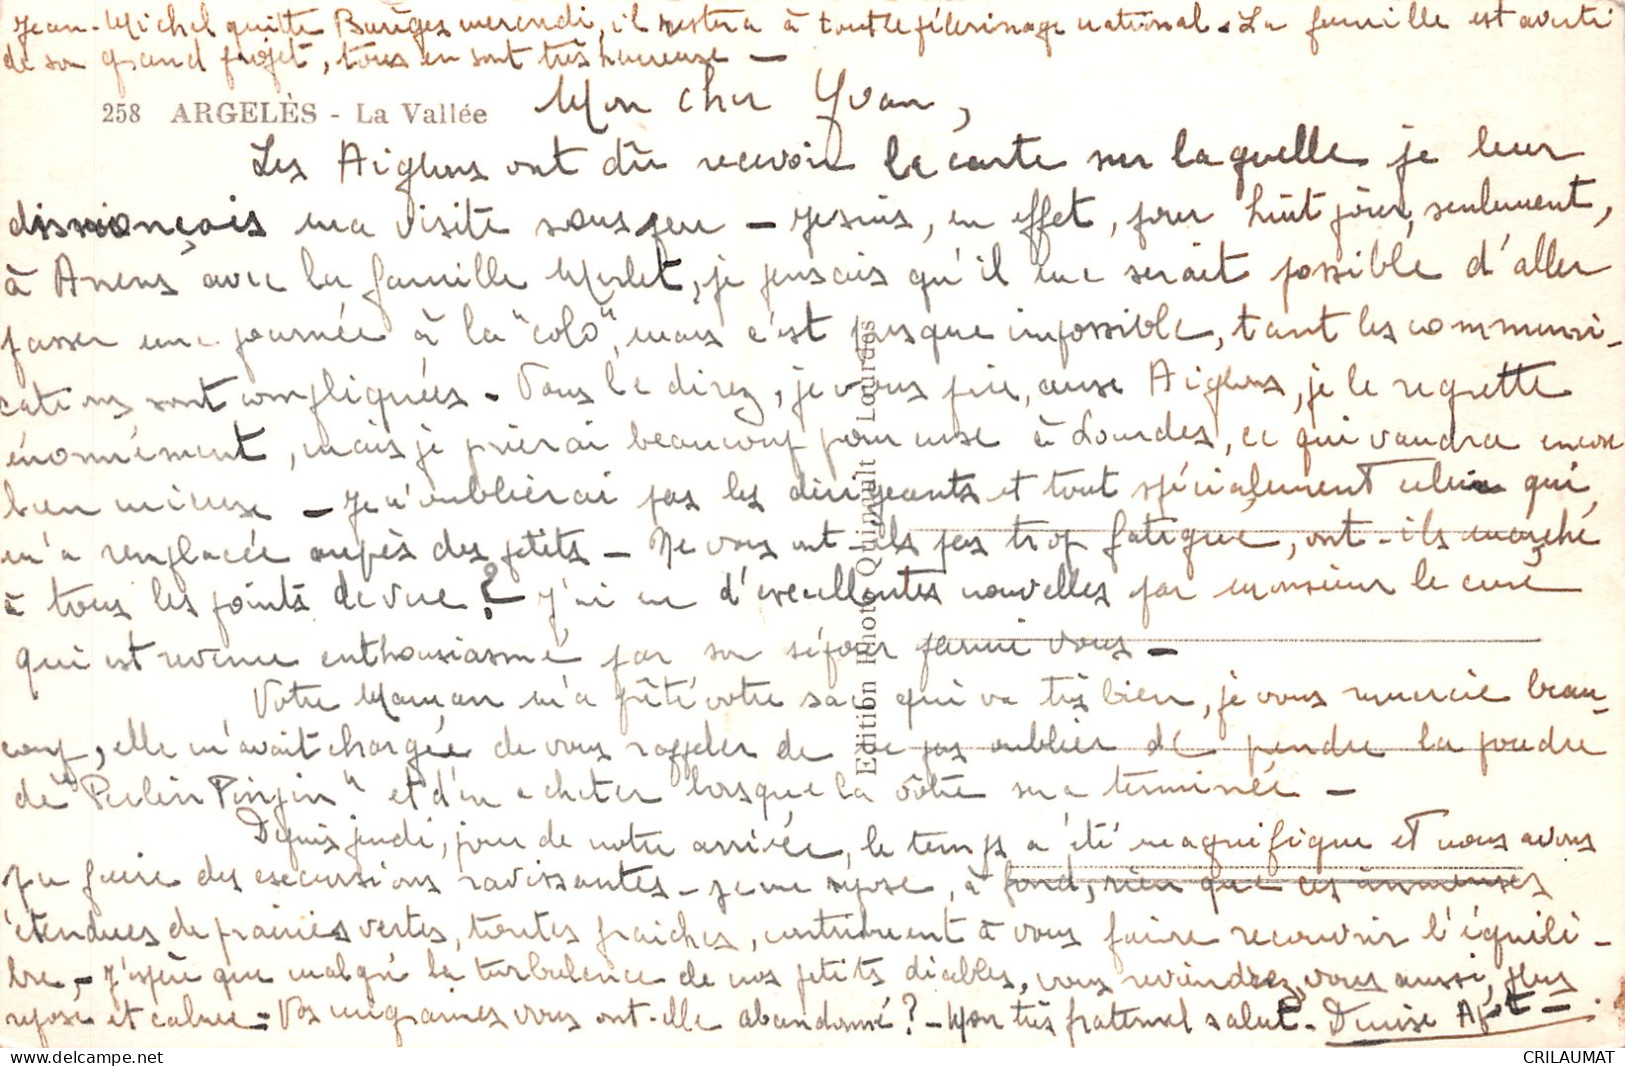 Jean-Michel quitte Barèges mercredi, il restera à tout le pélerinage national. La famille est averti
de son grand projet, tous en sont très heureuse —
258 ARGELÈS - La Vallée
Mon cher Yvan,
Les Aiglons ont dû recevoir la carte sur laquelle je leur
annonçais ma visite sous peu — Je suis, en effet, pour huit jours, seulement,
à Arrens avec la famille Merlet, je pensais qu'il me serait possible d'aller
passer une journée à la "colo", mais c'est presque impossible, tant les communi-
cations sont compliquées. Vous le direz, je vous prie, aux Aiglons, je le regrette
énormément, mais je prierai beaucoup pour eux à Lourdes, ce qui vaudra encore
bien mieux — Je n'oublierai pas les dirigeants et tout spécialement celui qui
m'a remplacée aupès des petits — Ne vous ont-ils pas trop fatigué, ont-ils marché
à tous les points de vue ? J'ai eu d'excellentes nouvelles par monsieur le curé
qui est revenu enthousiasmé par son séjour parmi vous —
Votre Maman m'a prêté votre sac qui va très bien, je vous remercie beau-
coup, elle m'avait chargée de vous rappeler de ne pas oublier de prendre la poudre
de " " et d'en acheter lorsque la vôtre sera terminée —
Depuis jeudi, jour de notre arrivée, le temps a été magnifique et nous avons
pu faire des excursions ravissantes — Je me repose, à fond, rien que ces immenses
étendues de prairies vertes, toutes fraiches, contribuent à vous faire recouvrir l'équili-
bre, — J'espère que malgré la turbulence de nos petits diables, vous reviendrez, vous aussi, plus
reposé et calme = Vos migraines vous ont-elle abandonné ? — Mon très fraternel salut. Denise
Edition Photo Quinault Lourdes
CRILAUMAT